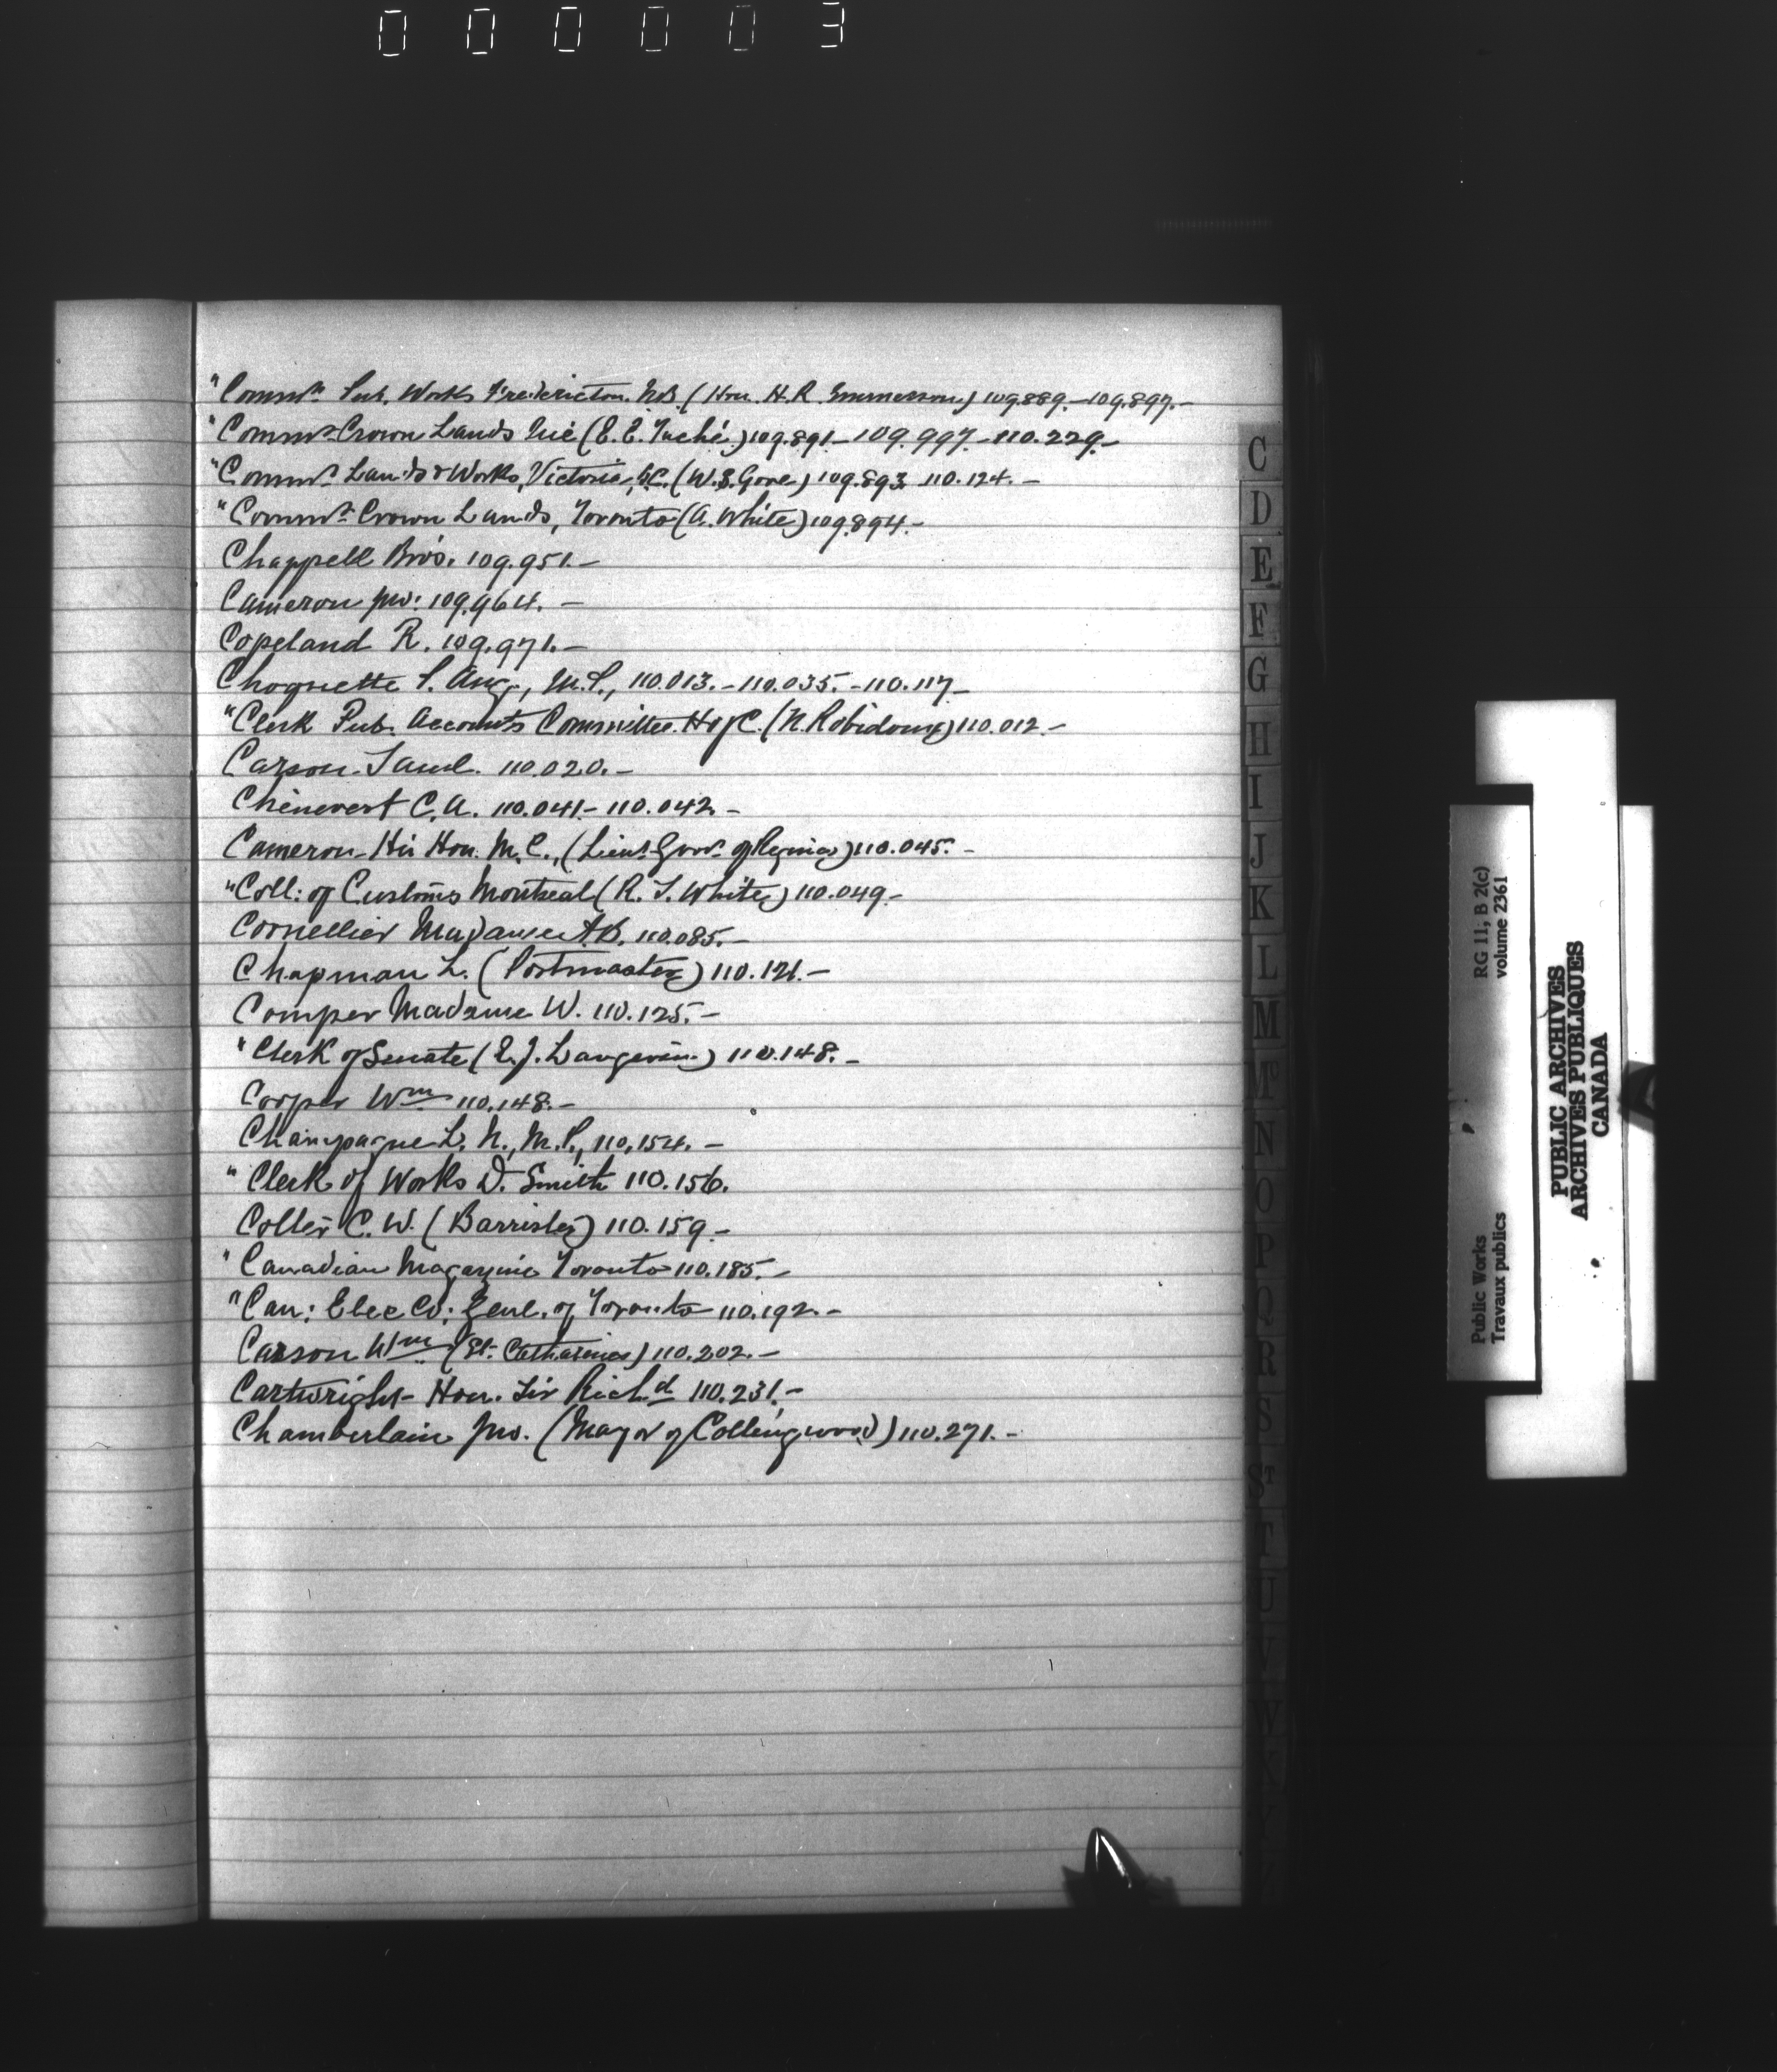 000003
"Commr. Pub. Works Fredericton. N.B. (Hon. H. R. Emmerson) 109.889.-109.897.-
"Commr. Crown Lands Que (E. E. Taché.) 109.891-109.997-110.229.-
"Commr. Lands & Works, Victoria, B.C. (W. S. Gore) 109.893. 110.124.-
"Commr. Crown Lands, Toronto (A. White) 109.894.-
Chappell Bro's. 109.951.-
Cameron Jno: 109.964.-
Copeland R. 109.971.-
Choquette P. Aug., M.P., 110.013.-110.035.-110.117-
"Clerk Pub. Accounts Committee. H of C. (N. Robidoux) 110.012.-
Carson Saml. 110.020.-
Chênevert C. A. 110.041.-110.042.-
Cameron-His Hon. M. C., (Lieut. Govr. of Regina) 110.045.-
"Coll: of Customs Montreal (R. S. White) 110.049.-
Cornellier Madame A.B. 110.085.-
Chapman L. (Postmaster) 110.121.-
Comper Madame W. 110.125.-
"Clerk of Senate (E. J. Langevin) 110.148.-
Corper Wm 110.148.-
Champagne L. N., M.P., 110.154.-
"Clerk of Works D. Smith 110.156.
Colter C. W. (Barrister) 110.159.-
"Canadian Magazine Toronto 110.185.-
"Can: Elec Co: Genl. of Toronto 110.192.-
Carson Wm (St. Catharines) 110.202.-
Cartwright-Hon. Sir Richd 110.231.-
Chamberlain Jno. (Mayor of Collingwood) 110.271.-
C
D
E
F
G
H
I
J
K
L
M
Mc
N
O
P
Q
R
S
ST
T
U
V
W
X
Y
Public Works RG 11, B 2(c)
Travaux publics volume 2361
PUBLIC ARCHIVES
ARCHIVES PUBLIQUES
CANADA